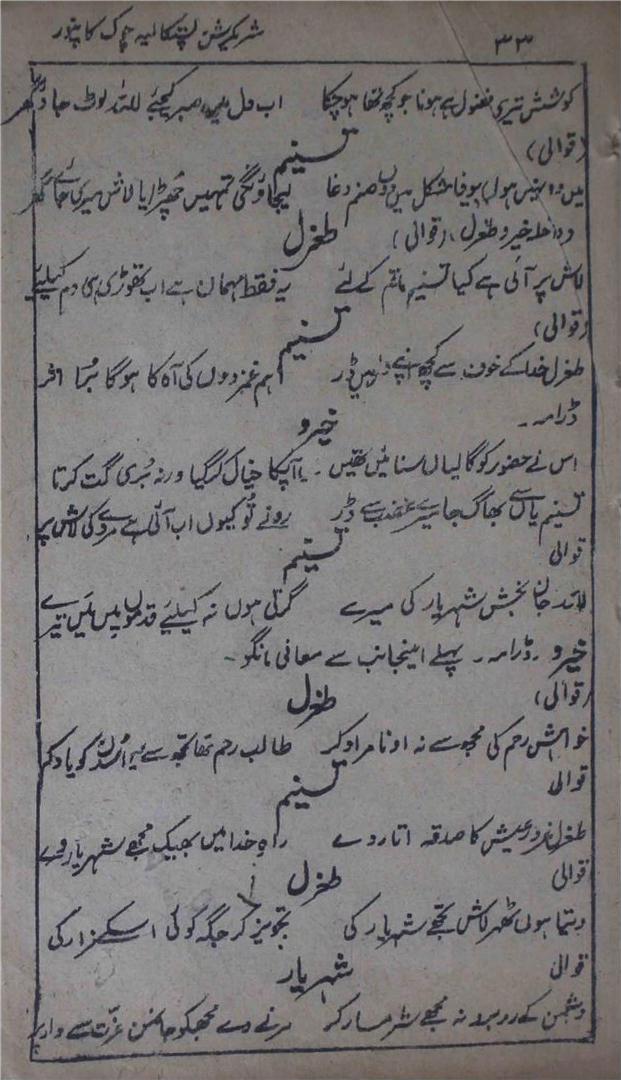 ۳۳ شریکرشن پستکالیہ چوک کانپور
کوشش تیری فضول ہے ہونا جو کچھ تھا ہوچکا اب دل میں صبر کیجئے للند لوٹ جا گھر
(قوالی) تسنیم
میں وہ نہیں ہوں بیوفا مشکل میں دوں صنم دغا لیجاؤنگی تمہیں چھڑا یا لاش میری جائے گھر
داخلہ خیرو طغرل (قوالی) طغرل
لاش پر آئی ہے کیا تسنیم ماتم کے لئے یہ فقط مہمان ہے اب تھوڑی ہی دم کیلئے
(قوالی) تسنیم
طغرل خدا کے خوف سے کچھ اپنے دل میں ڈر ہم غمزدوں کی آہ کا ہوگا بُرا اثر
ڈرامہ۔ خیرو
اس نے حضور کو گالیاں سنائیں تھیں۔ یا آپکا خیال کرگیا ورنہ بُری گت کرتا
تسنیم یاں سے بھاگ جا میرے غضب سے ڈر رونے تو کیوں اب آئی ہے مردے کی لاش پر
قوالی تسنیم
للند جان بخش شہریار کی میرے گرتی ہوں نہ کیلئے قدموں میں میں تیرے
خیرو۔ ڈرامہ۔ پہلے اینجانب سے معافی مانگو۔
(قوالی) طغرل
خواہش رحم کی مجھ سے نہ او نامراد کر طالب رحم تھا تجھ سے میں اُسدن کو یاد کر
قوالی تسنیم
طغرل غرور عیش کا صدقہ اتار دے راہِ خدا میں بھیک مجھے شہریار دے
قوالی طغرل
دیتا ہوں ٹھہر لاش تجھے شہریار کی تجویز کر جگہ کوئی اسکے مزار کی
قوالی شہریار
دشمن کے روبرو نہ مجھے شرمسار کر مرنے دے مجھکو جانمن عزت سے